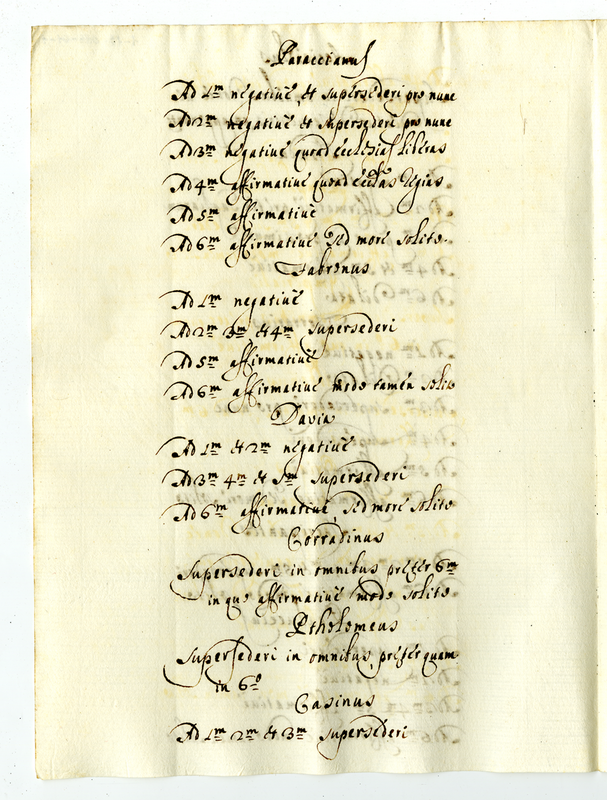 Paraccianus
Ad 1m negative, et supersederi pro nunc
Ad 2m negative et supersederi pro nunc
Ad 3m negative quoad ecclesias liberas
Ad 4m affirmative quoad eccl̃as Regias
Ad 5m affirmative
Ad 6m affirmative sed more solito.
Fabronus
Ad 1m negative
Ad 2m 3m et 4m supersederi
Ad 5m affirmative
Ad 6m affirmative modo tamen solito
Davia
Ad 1m et 2m negative
Ad 3m 4m et 5m supersederi
Ad 6m affirmative, sed more solito
Corradinus
Supersederi in omnibus preter 6m
in quo affirmative modo solito
Ptholomeus
Supersederi in omnibus, preterquam
in 6o
Casinus
Ad 1m 2m et 3m supersederi